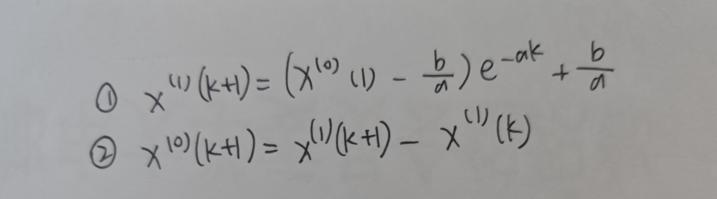 ① x⁽¹⁾(k+1) = (x⁽⁰⁾(1) - b/a) e^{-ak} + b/a
② x⁽⁰⁾(k+1) = x⁽¹⁾(k+1) - x⁽¹⁾(k)